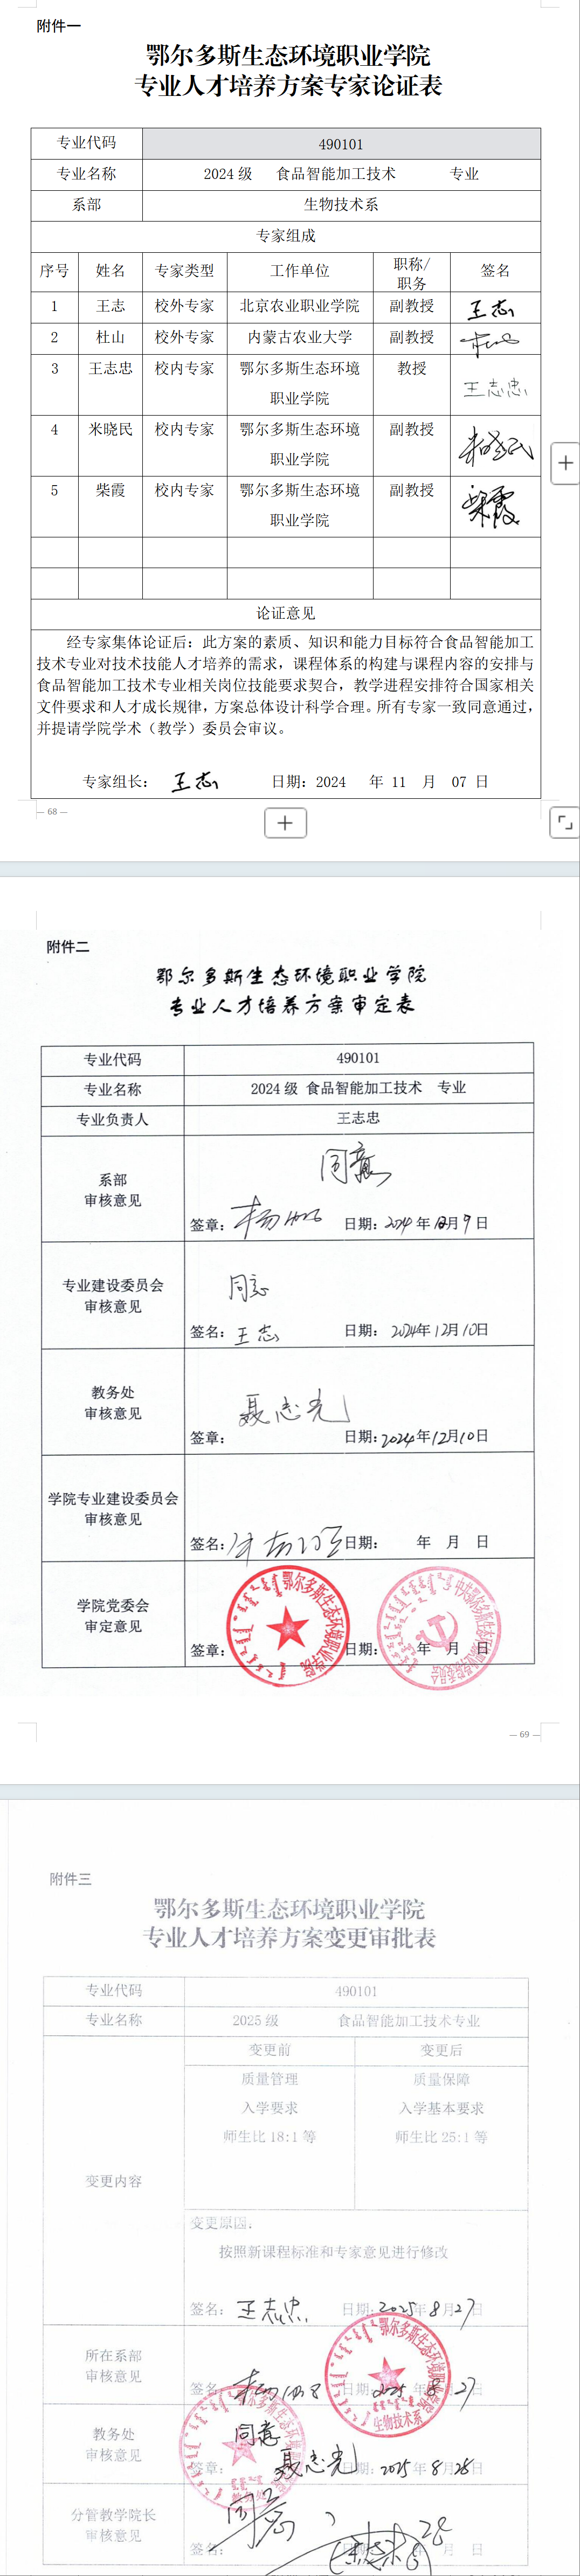 附件一
鄂尔多斯生态环境职业学院
专业人才培养方案专家论证表
专业代码 490101
专业名称 2024 级 食品智能加工技术 专业
系部 生物技术系
专家组成
序号 姓名 专家类型 工作单位 职称/职务 签名
1 王志 校外专家 北京农业职业学院 副教授 王志
2 杜山 校外专家 内蒙古农业大学 副教授 杜山
3 王志忠 校内专家 鄂尔多斯生态环境职业学院 教授 王志忠
4 米晓民 校内专家 鄂尔多斯生态环境职业学院 副教授 米晓民
5 柴霞 校内专家 鄂尔多斯生态环境职业学院 副教授 柴霞
论证意见
经专家集体论证后：此方案的素质、知识和能力目标符合食品智能加工
技术专业对技术技能人才培养的需求，课程体系的构建与课程内容的安排与
食品智能加工技术专业相关岗位技能要求契合，教学进程安排符合国家相关
文件要求和人才成长规律，方案总体设计科学合理。所有专家一致同意通过，
并提请学院学术（教学）委员会审议。
专家组长： 王志 日期：2024 年 11 月 07 日
— 68 —
附件二
鄂尔多斯生态环境职业学院
专业人才培养方案审定表
专业代码 490101
专业名称 2024 级 食品智能加工技术 专业
专业负责人 王志忠
系部
审核意见
同意
签章： 日期：2024 年 12 月 9 日
专业建设委员会
审核意见
同意
签名： 王志 日期： 2024年 12月 10日
教务处
审核意见
签章： 聂志光 日期：2024 年 12月 10 日
学院专业建设委员会
审核意见
签名： 日期： 年 月 日
学院党委会
审定意见
签章： 日期： 年 月 日
鄂尔多斯生态环境职业学院
— 69 —
附件三
鄂尔多斯生态环境职业学院
专业人才培养方案变更审批表
专业代码 490101
专业名称 2025 级 食品智能加工技术专业
变更内容
变更前 变更后
质量管理 质量保障
入学要求 入学基本要求
师生比 18:1 等 师生比 25:1 等
变更原因：
按照新课程标准和专家意见进行修改
签名： 王志忠 日期：2025 年 8 月 27 日
所在系部
审核意见
签名： 日期：2025 年 8 月 27 日
生物技术系
教务处
审核意见
同意
签章： 聂志光 2025 年 8 月 28 日
教务处
分管教学院长
审核意见
同意
签名： 28